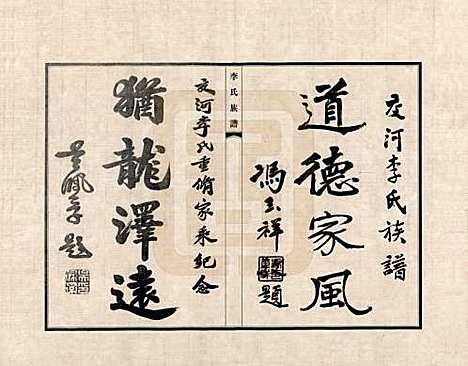 交河李氏族譜
道德家風
馮玉祥題
李氏族譜
交河李氏重脩家乘紀念
猶龍澤遠
吳佩孚題